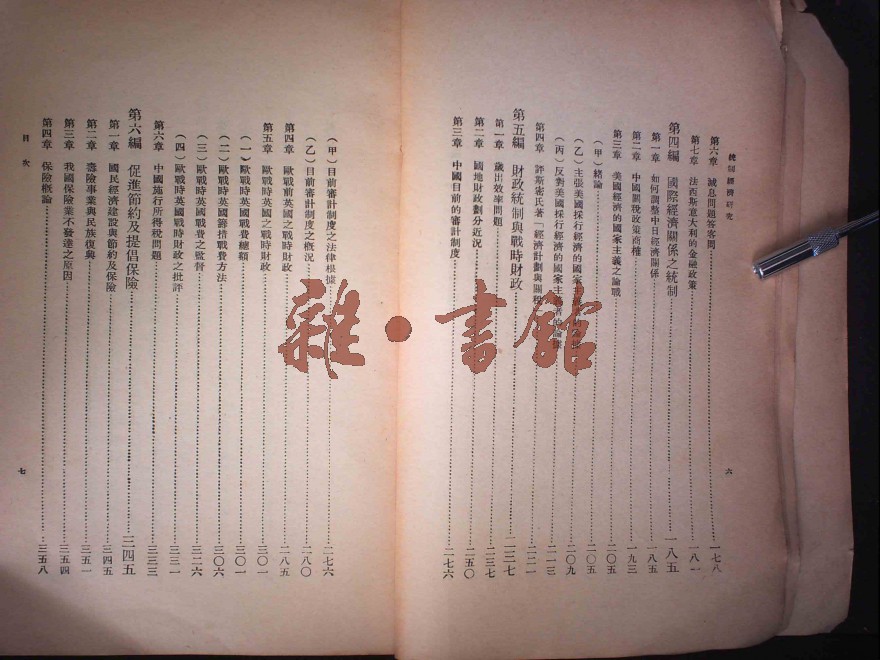 統制經濟研究
六
第六章 減息問題答客問……一七八
第七章 法西斯意大利的金融政策……一八一
第四編 國際經濟關係之統制……一八五
第一章 如何調整中日經濟關係……一八五
第二章 中國關稅政策商榷……一九三
第三章 美國經濟的國家主義之論戰……二〇五
(甲)緒論……二〇五
(乙)主張美國採行經濟的國家主義……二〇九
(丙)反對美國採行經濟的國家主義者的論……二一三
第四章 評斯密氏著「經濟計劃與關稅……二二一
第五編 財政統制與戰時財政……二三七
第一章 歲出效率問題……二三七
第二章 國地財政劃分近況……二五〇
第三章 中國目前的審計制度……二七六
(甲)目前審計制度之法律根據……二七六
(乙)目前審計制度之概況……二八〇
第四章 歐戰前英國之戰時財政……二八五
第五章 歐戰時英國之戰時財政……三〇一
(一)歐戰時英國戰費總額……三〇一
(二)歐戰時英國籌措戰費方法……三〇六
(三)歐戰時英國戰費之監督……三二六
(四)歐戰時英國戰時財政之批評……三三一
第六章 中國施行所得稅問題……三三三
第六編 促進節約及提倡保險……三四五
第一章 國民經濟建設與節約及保險……三四五
第二章 壽險事業與民族復興……三五一
第三章 我國保險業不發達之原因……三五四
第四章 保險概論……三五八
目次
七
雜·書館